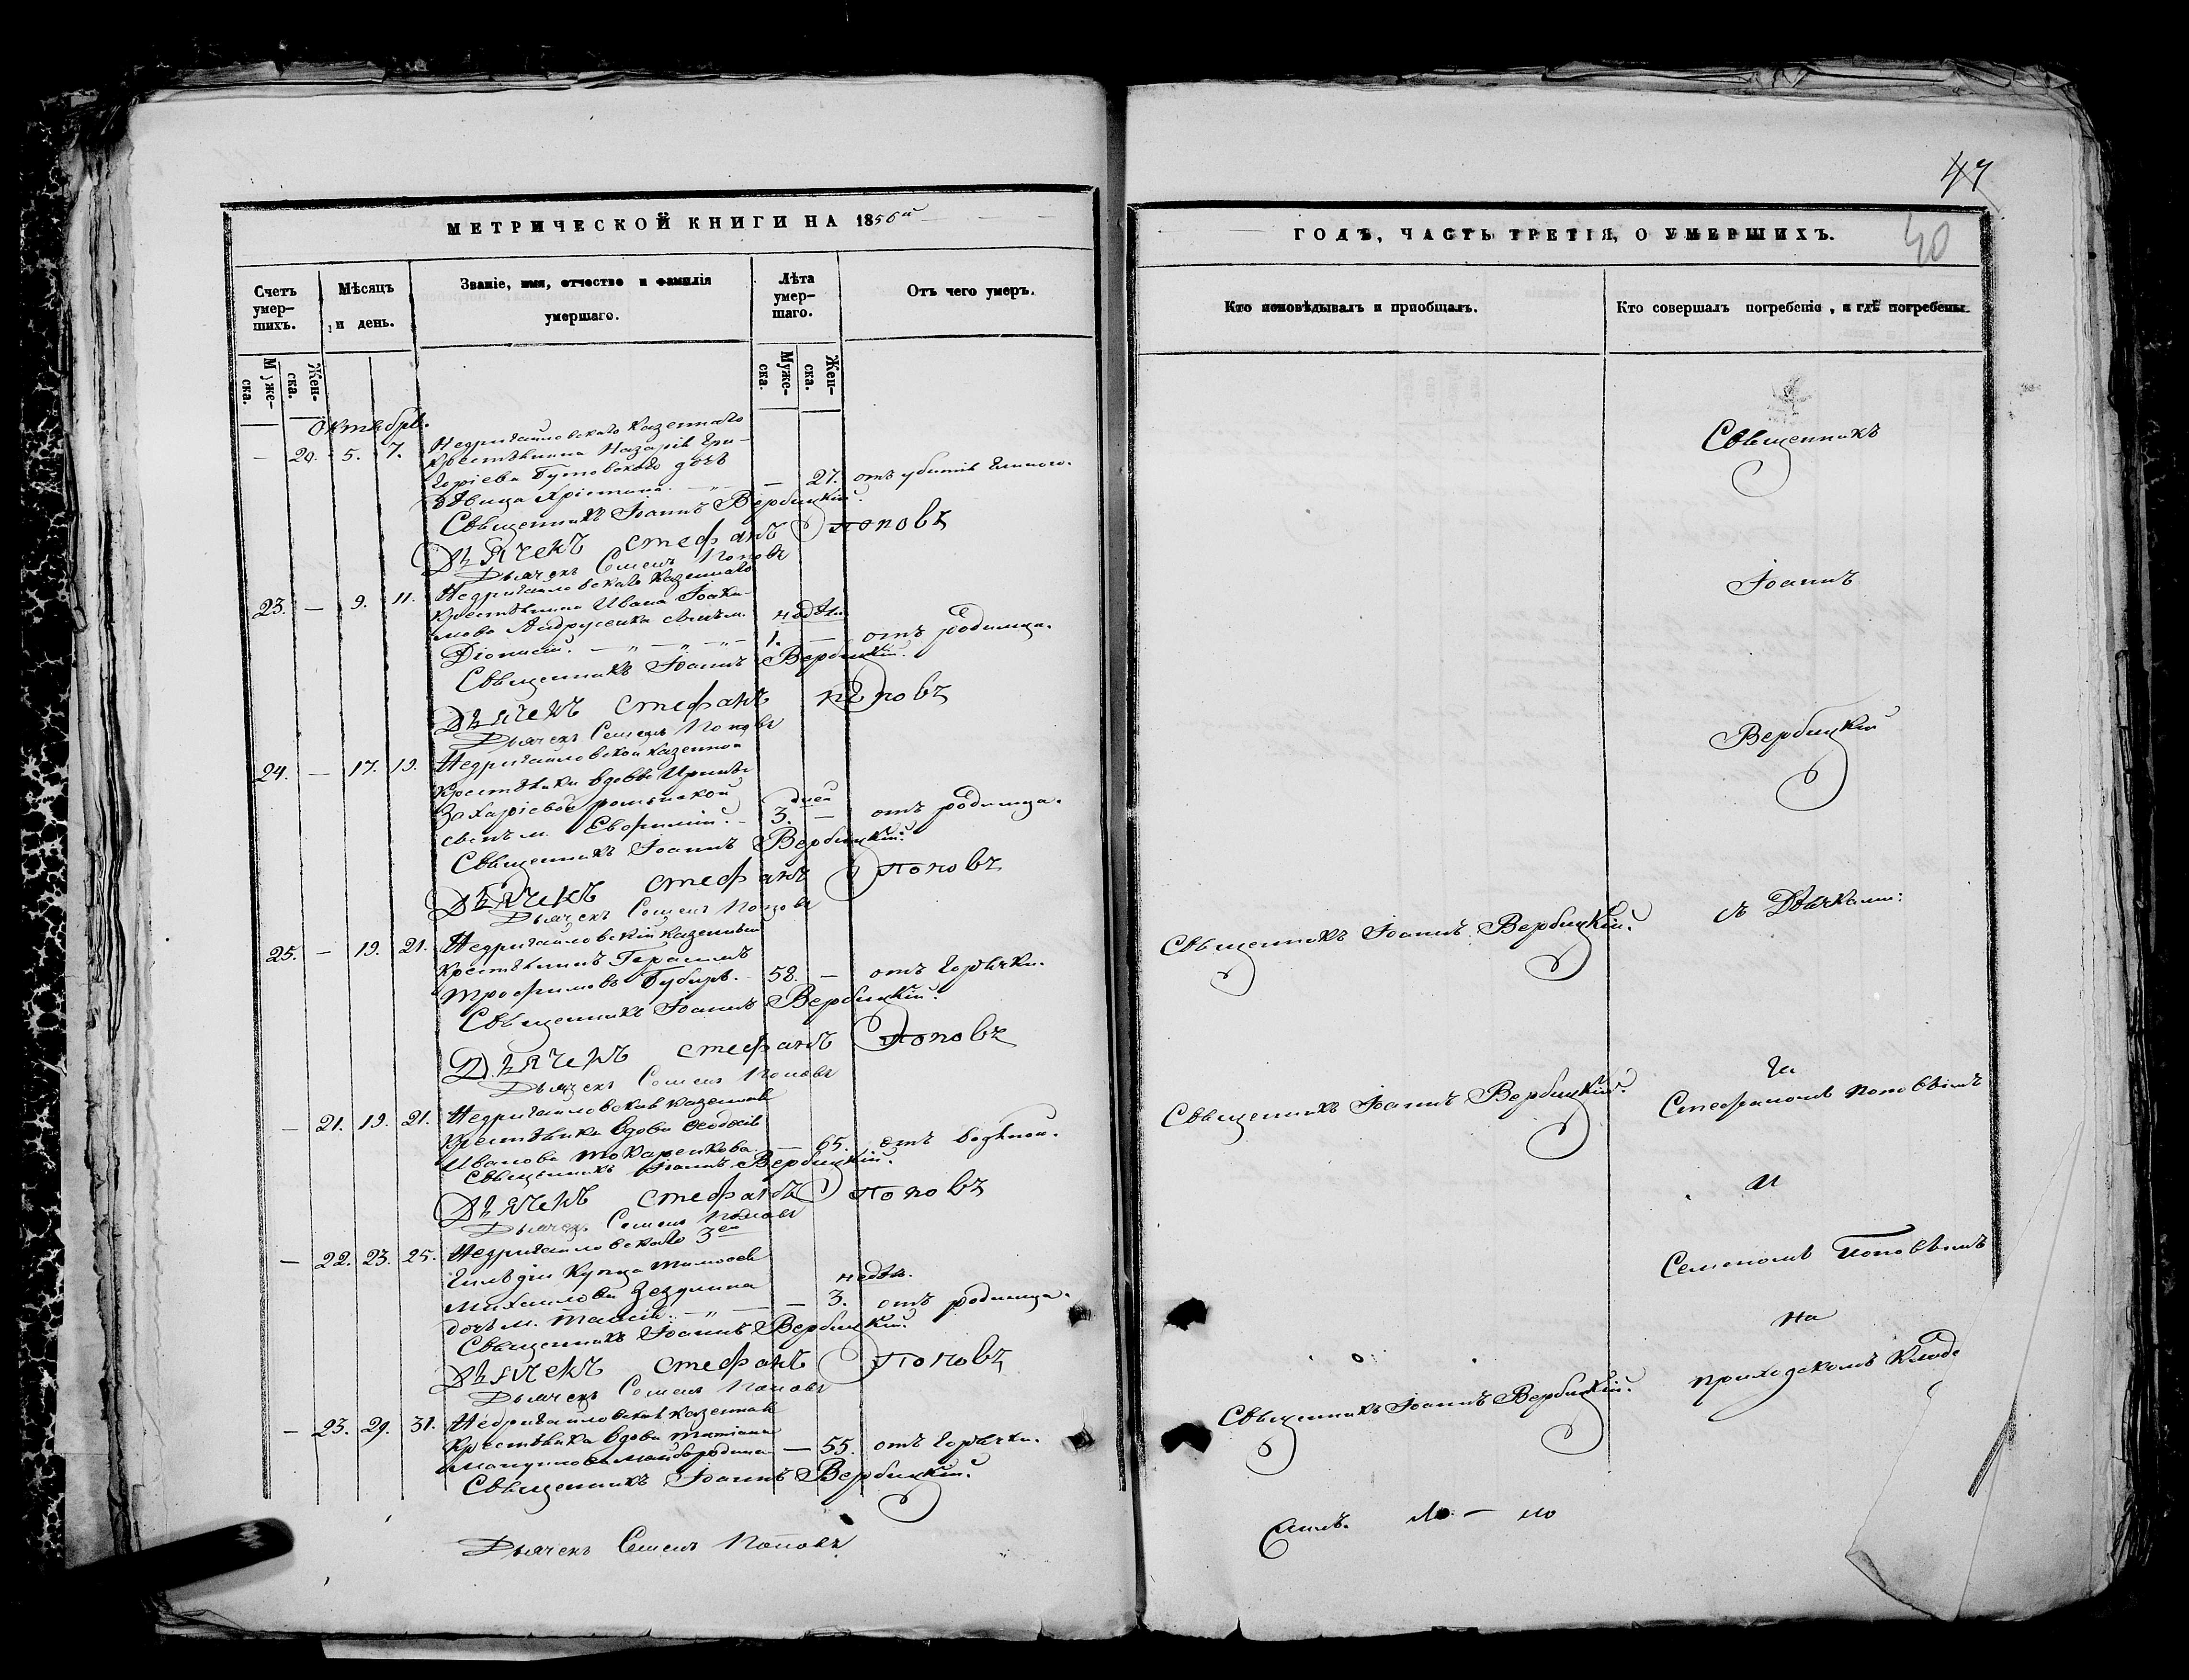 МЕТРИЧЕСКОЙ КНИГИ НА 1856й
Счетъ умер-
шихъ.
Мѣсяцъ
и день.
Званіе, имя, отчество и фамилія
умершаго.
Лѣта
умер-
шаго.
Отъ чего умеръ.
Муже-
ска.
Жен-
ска.
Муже-
ска.
Жен-
ска.
Октября.
— 20. 5. 7. Недригайловскаго казеннаго
крестьянина Назарія Гри-
горіева Бутовскаго дочь
дѣвица Христина. — 27. отъ убитія
Священникъ Іоаннъ Вербицкій.
Дьячекъ Стефанъ Поповъ
Дьячекъ Семенъ Поповъ
23. — 9. 11. Недригайловскаго казеннаго
крестьянина Ивана Іоаки-
мова Андрусенка сынъ м. недѣли
Діонисій. — „ — „ — „ — 1. — отъ родимца.
Священникъ Іоаннъ Вербицкій.
Дьячекъ Стефанъ Поповъ
Дьячекъ Семенъ Поповъ
24. — 17. 19. Недригайловской казенной
крестьянки вдовы Ирины
Захаріевой дней
сынъ м. Евфимій. — 3. — отъ родимца.
Священникъ Іоаннъ Вербицкій.
Дьячекъ Стефанъ Поповъ
Дьячекъ Семенъ Поповъ
25. — 19. 21. Недригайловскій казенный
крестьянинъ Герасимъ
Трофимовъ Бубырь. — 58. — отъ горячки.
Священникъ Іоаннъ Вербицкій.
Дьячекъ Стефанъ Поповъ
Дьячекъ Семенъ Поповъ
— 21. 19. 21. Недригайловская казенная
крестьянка вдова Феодосія
Иванова Токаренкова. — 65. отъ водяной.
Священникъ Іоаннъ Вербицкій.
Дьячекъ Стефанъ Поповъ
Дьячекъ Семенъ Поповъ
— 22. 23. 25. Недригайловскаго 3ей
гильдіи купца Тимофея
Михайлова недѣль.
дочь м. Таисія. — „ — 3. отъ родимца.
Священникъ Іоаннъ Вербицкій.
Дьячекъ Стефанъ Поповъ
Дьячекъ Семенъ Поповъ
— 23. 29. 31. Недригайловская казенная
крестьянка вдова Татіана
Мануилова Майбородина — 55. отъ горячки.
Священникъ Іоаннъ Вербицкій.
Дьячекъ Семенъ Поповъ
47
40
ГОДЪ, ЧАСТЬ ТРЕТІЯ, О УМЕРШИХЪ.
Кто исповѣдывалъ и пріобщалъ.
Кто совершалъ погребеніе, и гдѣ погребены.
Священникъ
Іоаннъ
Вербицкій
Священникъ Іоаннъ Вербицкій.
съ Дьячками:
Священникъ Іоаннъ Вербицкій.
Стефаномъ Поповымъ
и
Семеномъ Поповымъ
на
Священникъ Іоаннъ Вербицкій.
приходскомъ кладб